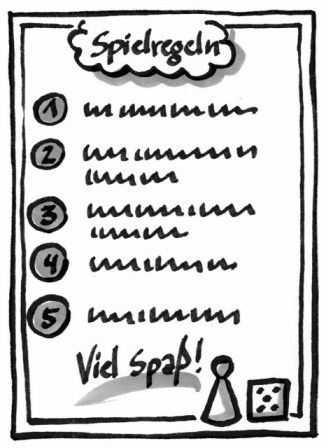 Spielregeln
1
2
3
4
5
Viel Spaß!